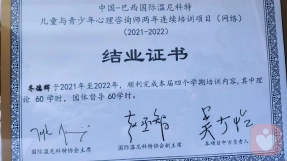 中国-巴西国际温尼科特
儿童与青少年心理咨询师两年连续培训项目（网络）
（2021-2022）
结业证书
于2021年至2022年，顺利完成本届四个学期培训内容，其中理
论 60学时，团体督导60学时。
国际温尼科特协会主席
国际温尼科特协会副主席
本项目中方负责人